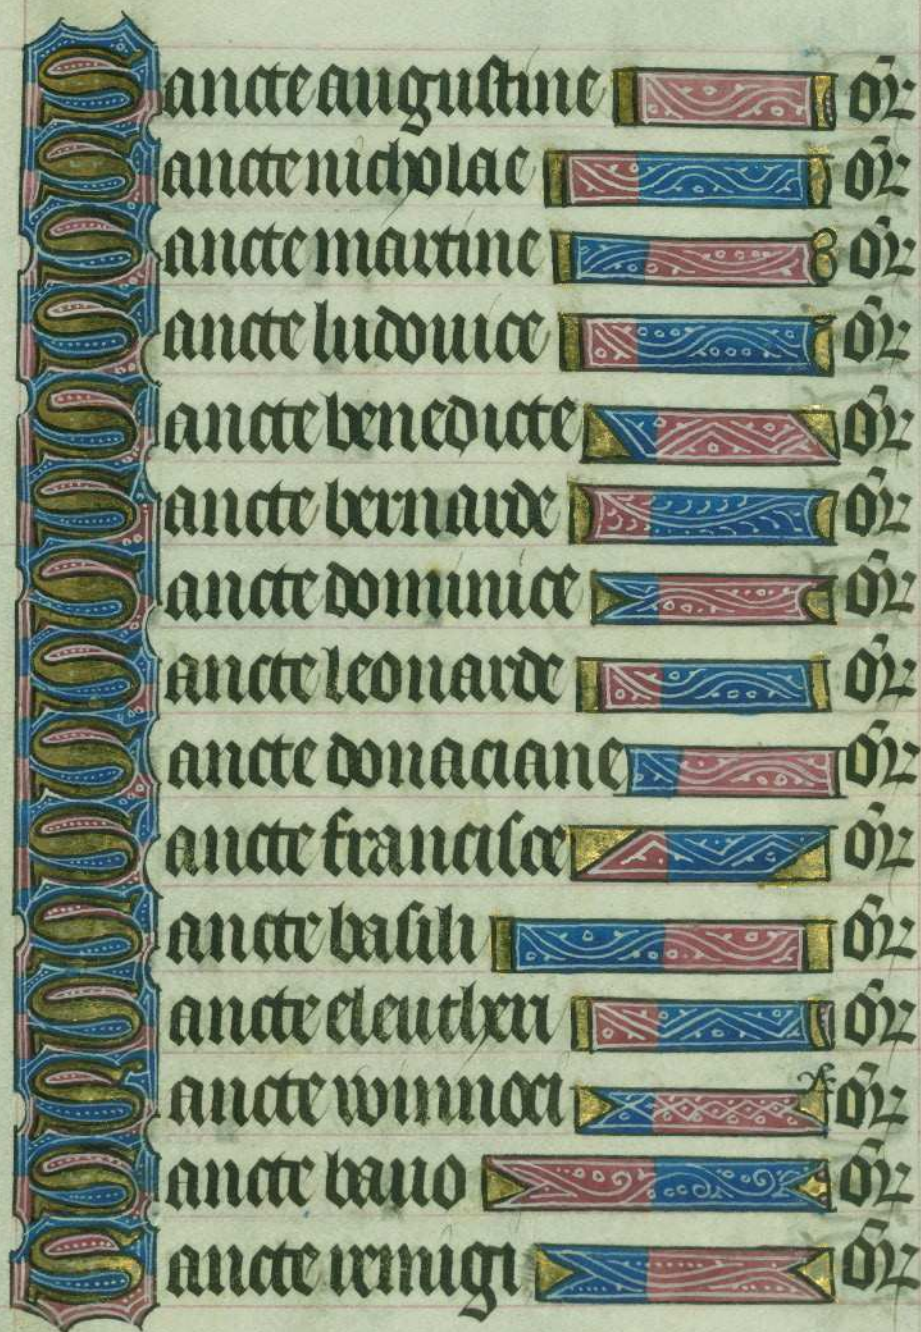 Sancte augustine or
Sancte nicholae or
Sancte martine or
Sancte ludouice or
Sancte benedicte or
Sancte bernarde or
Sancte dominice or
Sancte leonarde or
Sancte donaciane or
Sancte francisce or
Sancte basili or
Sancte eleutheri or
Sancte winnoci or
Sancte bauo or
Sancte remigi or